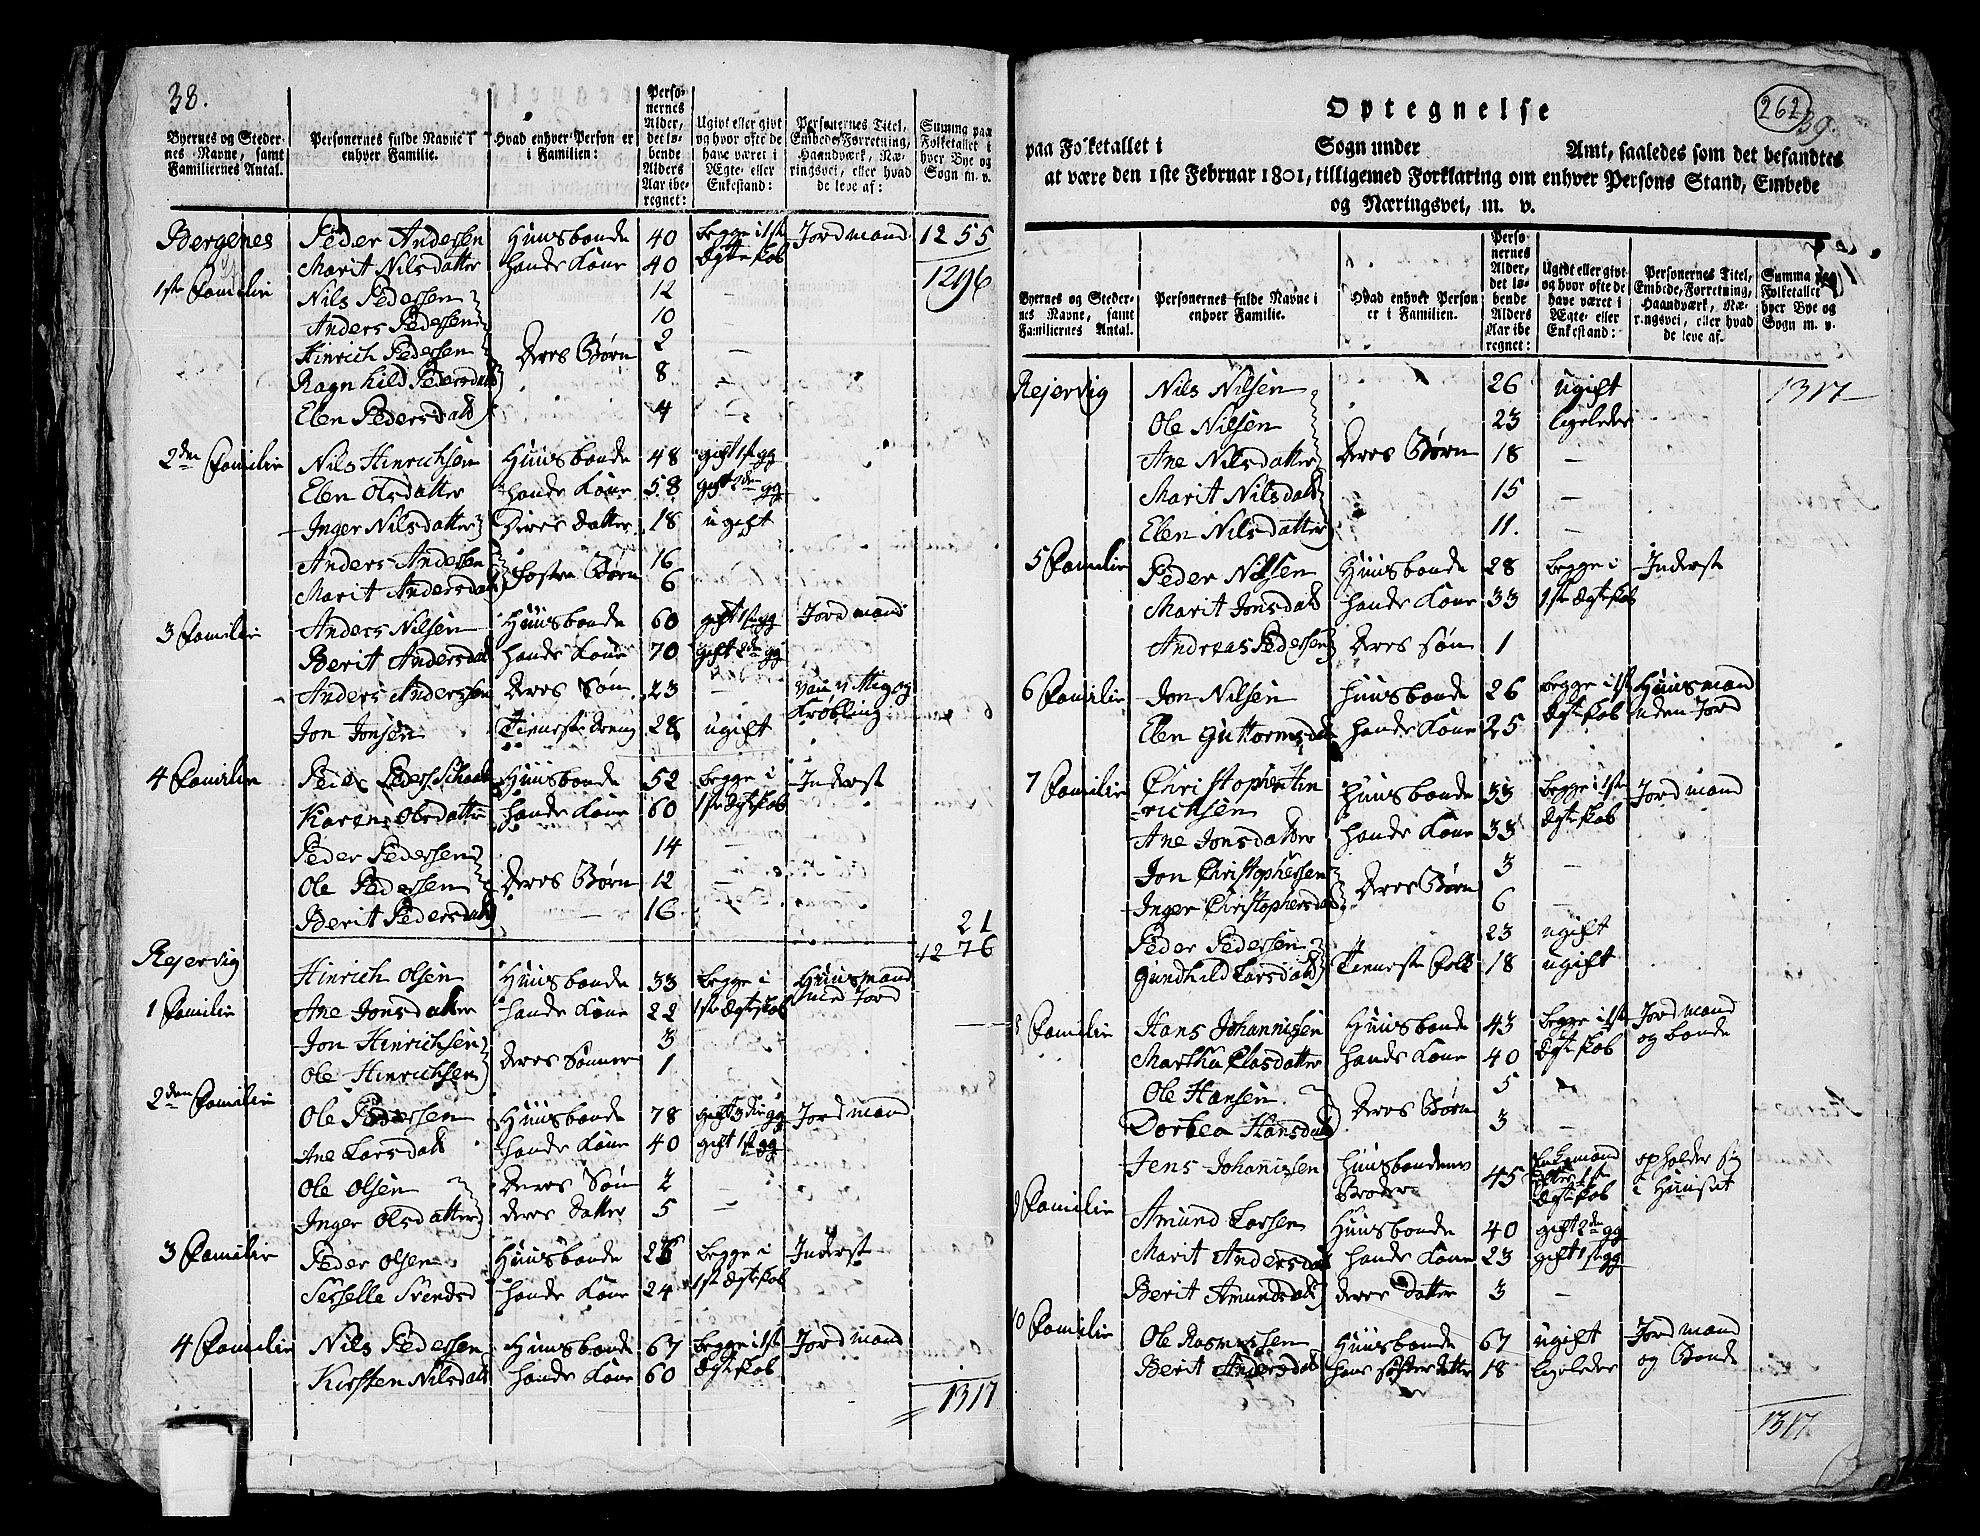 38.
Byernes og Steder- Personernes fulde Navne i Hvad enhver Person er Perso- Ugivt eller givt Personernes Titel, Summa paa
nes Navne, samt enhver Familie. i Familien: nernes og hvor ofte de Embede, Forretning, Folketallet i
Familiernes Antal. Alder, have været i Haandværk, Næ- hver Bye og
det lø- Ægte- eller ringsvei, eller hvad Sogn m. v.
bende Enkestand: de leve af:
Alders
Aar ibe-
regnet:
Bergenes Peder Andersen Huusbonde 40 begge i 1ste Jordmand 1255
Marit Nilsdatter hands Kone 40 Ægteskab
1ste Familie Nils Pedersen 12 – 1296
Anders Pedersen 10
Hinrich Pedersen Deres Børn 2 –
Ragnhild Pedersdatt 8 –
Elen Pedersdatt 4 –
2den Familie Nils Hinrichsen Huusbonde 48 gift 1ste gg
Elen Olsdatter hands Kone 58 gift 2den gg
Inger Nilsdatter Deres Datter 18 ugift
Anders Andersen Foster Børn 16
Marit Andersdatt 6
3 Familie Anders Nilsen Huusbonde 60 gift 1ste gg Jordmand
Berit Andersdat hands Kone 70 gift 2den gg
Anders Anderssen Deres Søn 23 – og
Krøbling
Jon Jonsen Tieneste Dreng 28 ugift
4 Familie Peder Peders. Huusbonde 52 begge i Inderst
Karen Olsdatter hands Kone 60 1ste Ægteskab
Peder Pedersen 14 –
Ole Pedersen Deres Børn 12 –
Berit Pedersdatt – 16
21
Rejervig 1276
Hinrich Olsen Huusbonde 33 begge i Huusmand
1 Familie Ane Jonsdatter hands Kone 22 1ste Ægteskab med Jord
Jon Hinrichsen 3
Ole Hinrichsen Deres Sønner 1
2den Familie
Ole Pedersen Huusbonde 78 gift 3die gg Jordmand
Ane Larsdatt hands Kone 40 gift 1ste gg
Ole Olsen Deres Søn 2 –
Inger Olsdatter deres Datter 5 –
3 Familie Peder Olsen Huusbonde 26 begge i Inderst
Sesselle Svendsd hands Kone 24 1ste Ægteskab
4 Familie Nils Pedersen Huusbonde 67 begge i 1ste Jordmand
Kirsten Nilsdatt hands Kone 60 Ægteskab
1317
262
39.
Optegnelse
paa Folketallet i Sogn under Amt, saaledes som det befandtes
at være den 1ste Februar 1801, tilligemed Forklaring om enhver Persons Stand, Embede
og Næringsvei, m. v.
Byernes og Steder- Personernes fulde Navne i Hvad enhver Person Perso- Ugivt eller givt Personernes Titel, Summa paa
nes Navne, samt enhver Familie. er i Familien. nernes og hvor ofte de Embede, Forretning, Folketallet i
Familiernes Antal. Alder, have været i Haandværk, Næ- hver Bye og
det lø- Ægte- eller ringsvei, eller hvad Sogn m. v.
bende Enkestand: de leve af.
Alders
Aar ibe-
regnet:
Rejervig Nils Nilsen 26 ugift 1317
Ole Nilsen 23 ligeledes
Ane Nilsdatter Deres Børn 18 –
Marit Nilsdatt 15 –
Elen Nilsdatter 11. –
5 Familie Peder Nilsen Huusbonde 28 begge i Inderst
Marit Jonsdatt hands Kone 33 1ste Ægteskab
Andreas Pedersen Deres søn 1
6 Familie Jon Nilsen Huusbonde 26 begge i 1ste Huusmand
Elen Guttormsdat hands Kone 25 Ægteskab uden Jord
7 Familie Christopher Hin
richsen Huusbonde 33 begge i 1ste Jordmand
Ane Jonsdatter hands Kone 33 Ægteskab
Jon Christophersen 3 –
Inger Christophersdat Deres Børn 6 –
Peder Pedersen 23 ugift
Gundhild Larsdatt Tieneste Folk 18 ugift
8 Familie Hans Johannissen Huusbonde 43 begge i 1ste Jordmand
Martha Olasdatter hands Kone 40 Ægteskab og bonde
Ole Hansen 5 –
Dorbea Hansdatt Deres Børn 3 –
Jens Johannissen Huusbondens Broder 45 Enkemand efter 1ste Ægteskab opholder sig i Huuset
9 Familie
Amund Larsen Huusbonde 40 gift 2den gg
Marit Andersdatt hands Kone 23 gift 1ste gg
Berit Amundsdatt deres Datter 3 –
10 Familie Ole Rasmussen Huusbonde 67 ugift Jordmand
Berit Andersdatt hans søster datter 18 ligeledes og Bonde
1317